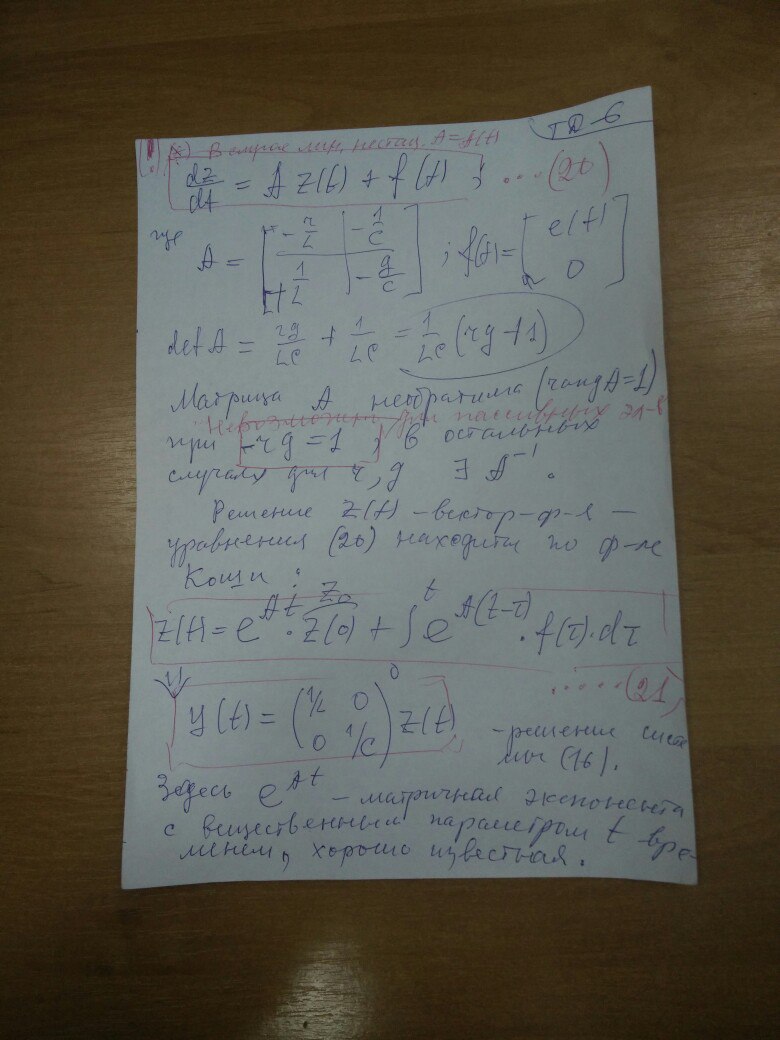 ТД-6
(*) В случае лин. нестац. A = A(t)
dz/dt = A z(t) + f(t) ; ...(20)
где A = [ -r/L | -1/C ; +1/L | -g/C ] ; f(t) = [ e(t) ; 0 ]
det A = rg/LC + 1/LC = 1/LC (rg + 1)
Матрица A необратима (rang A = 1)
Невозможно для пассивных эл-в
при -rg = 1 ; в остальных
случаях для r, g ∃ A⁻¹.
Решение z(t) - вектор-ф-я -
уравнения (20) находится по ф-ле
Коши :
z(t) = e^{At} · z(0) + ∫₀^t e^{A(t-τ)} · f(τ) · dτ
z₀
.....(21)
y(t) = ( 1/L 0 ; 0 1/C ) z(t) - решение систе
мы (16).
Здесь e^{At} - матричная экспонента
с вещественным параметром t вре-
менем, хорошо известная.